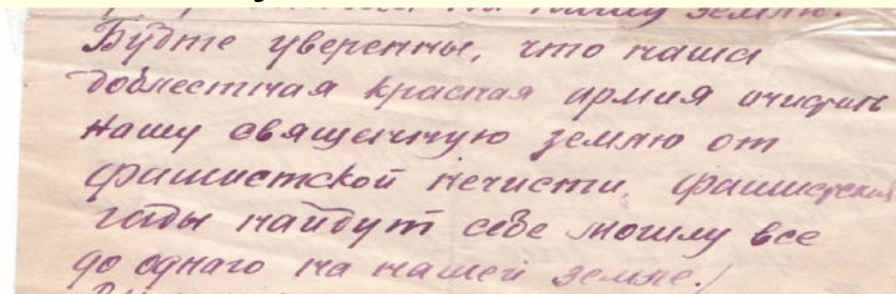 нашу землю.
Будте уверенны, что наша
доблестная красная армия очистит
нашу священную землю от
фашистской нечисти, фашистские
гады найдут себе могилу все
до одного на нашей земле!